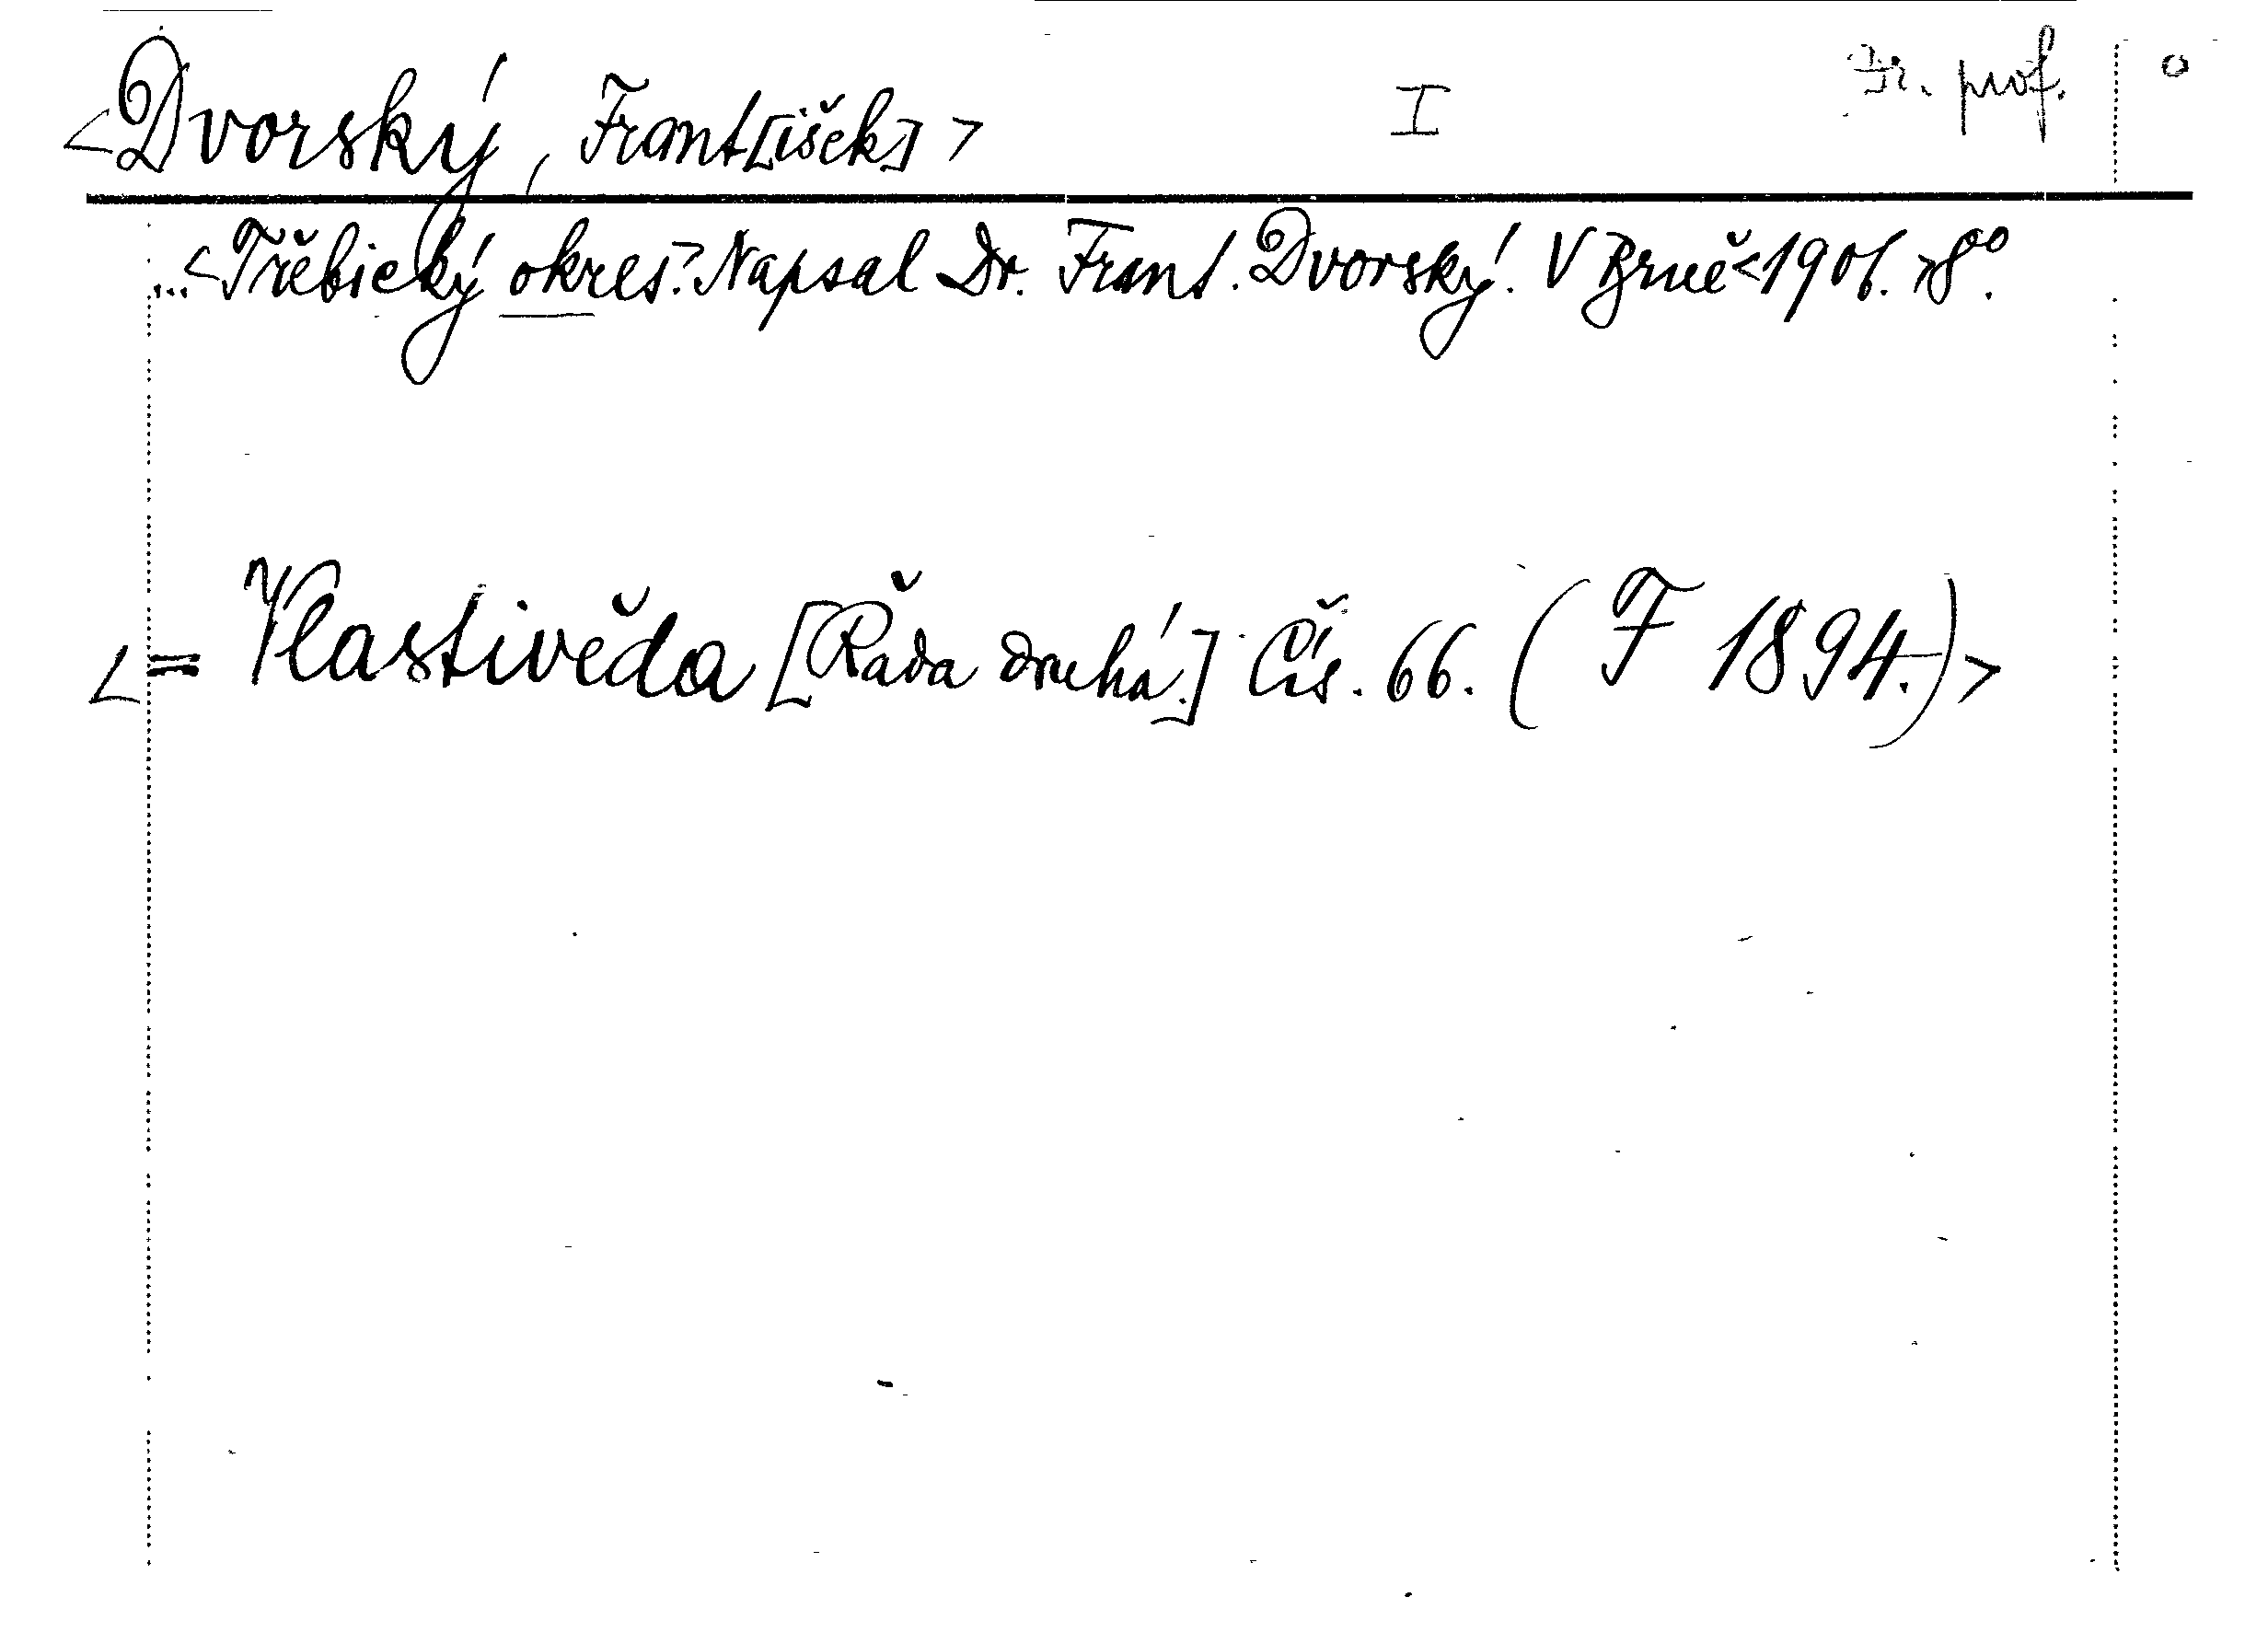 <Dvorský, Frant[išek]> I Dr. prof.
...<Třebický okres.> Napsal Dr. Frant. Dvorský. V Brně <1906.> 8°.
<= Vlastivěda [Řada druhá.] Čís. 66. (F 1894.)>